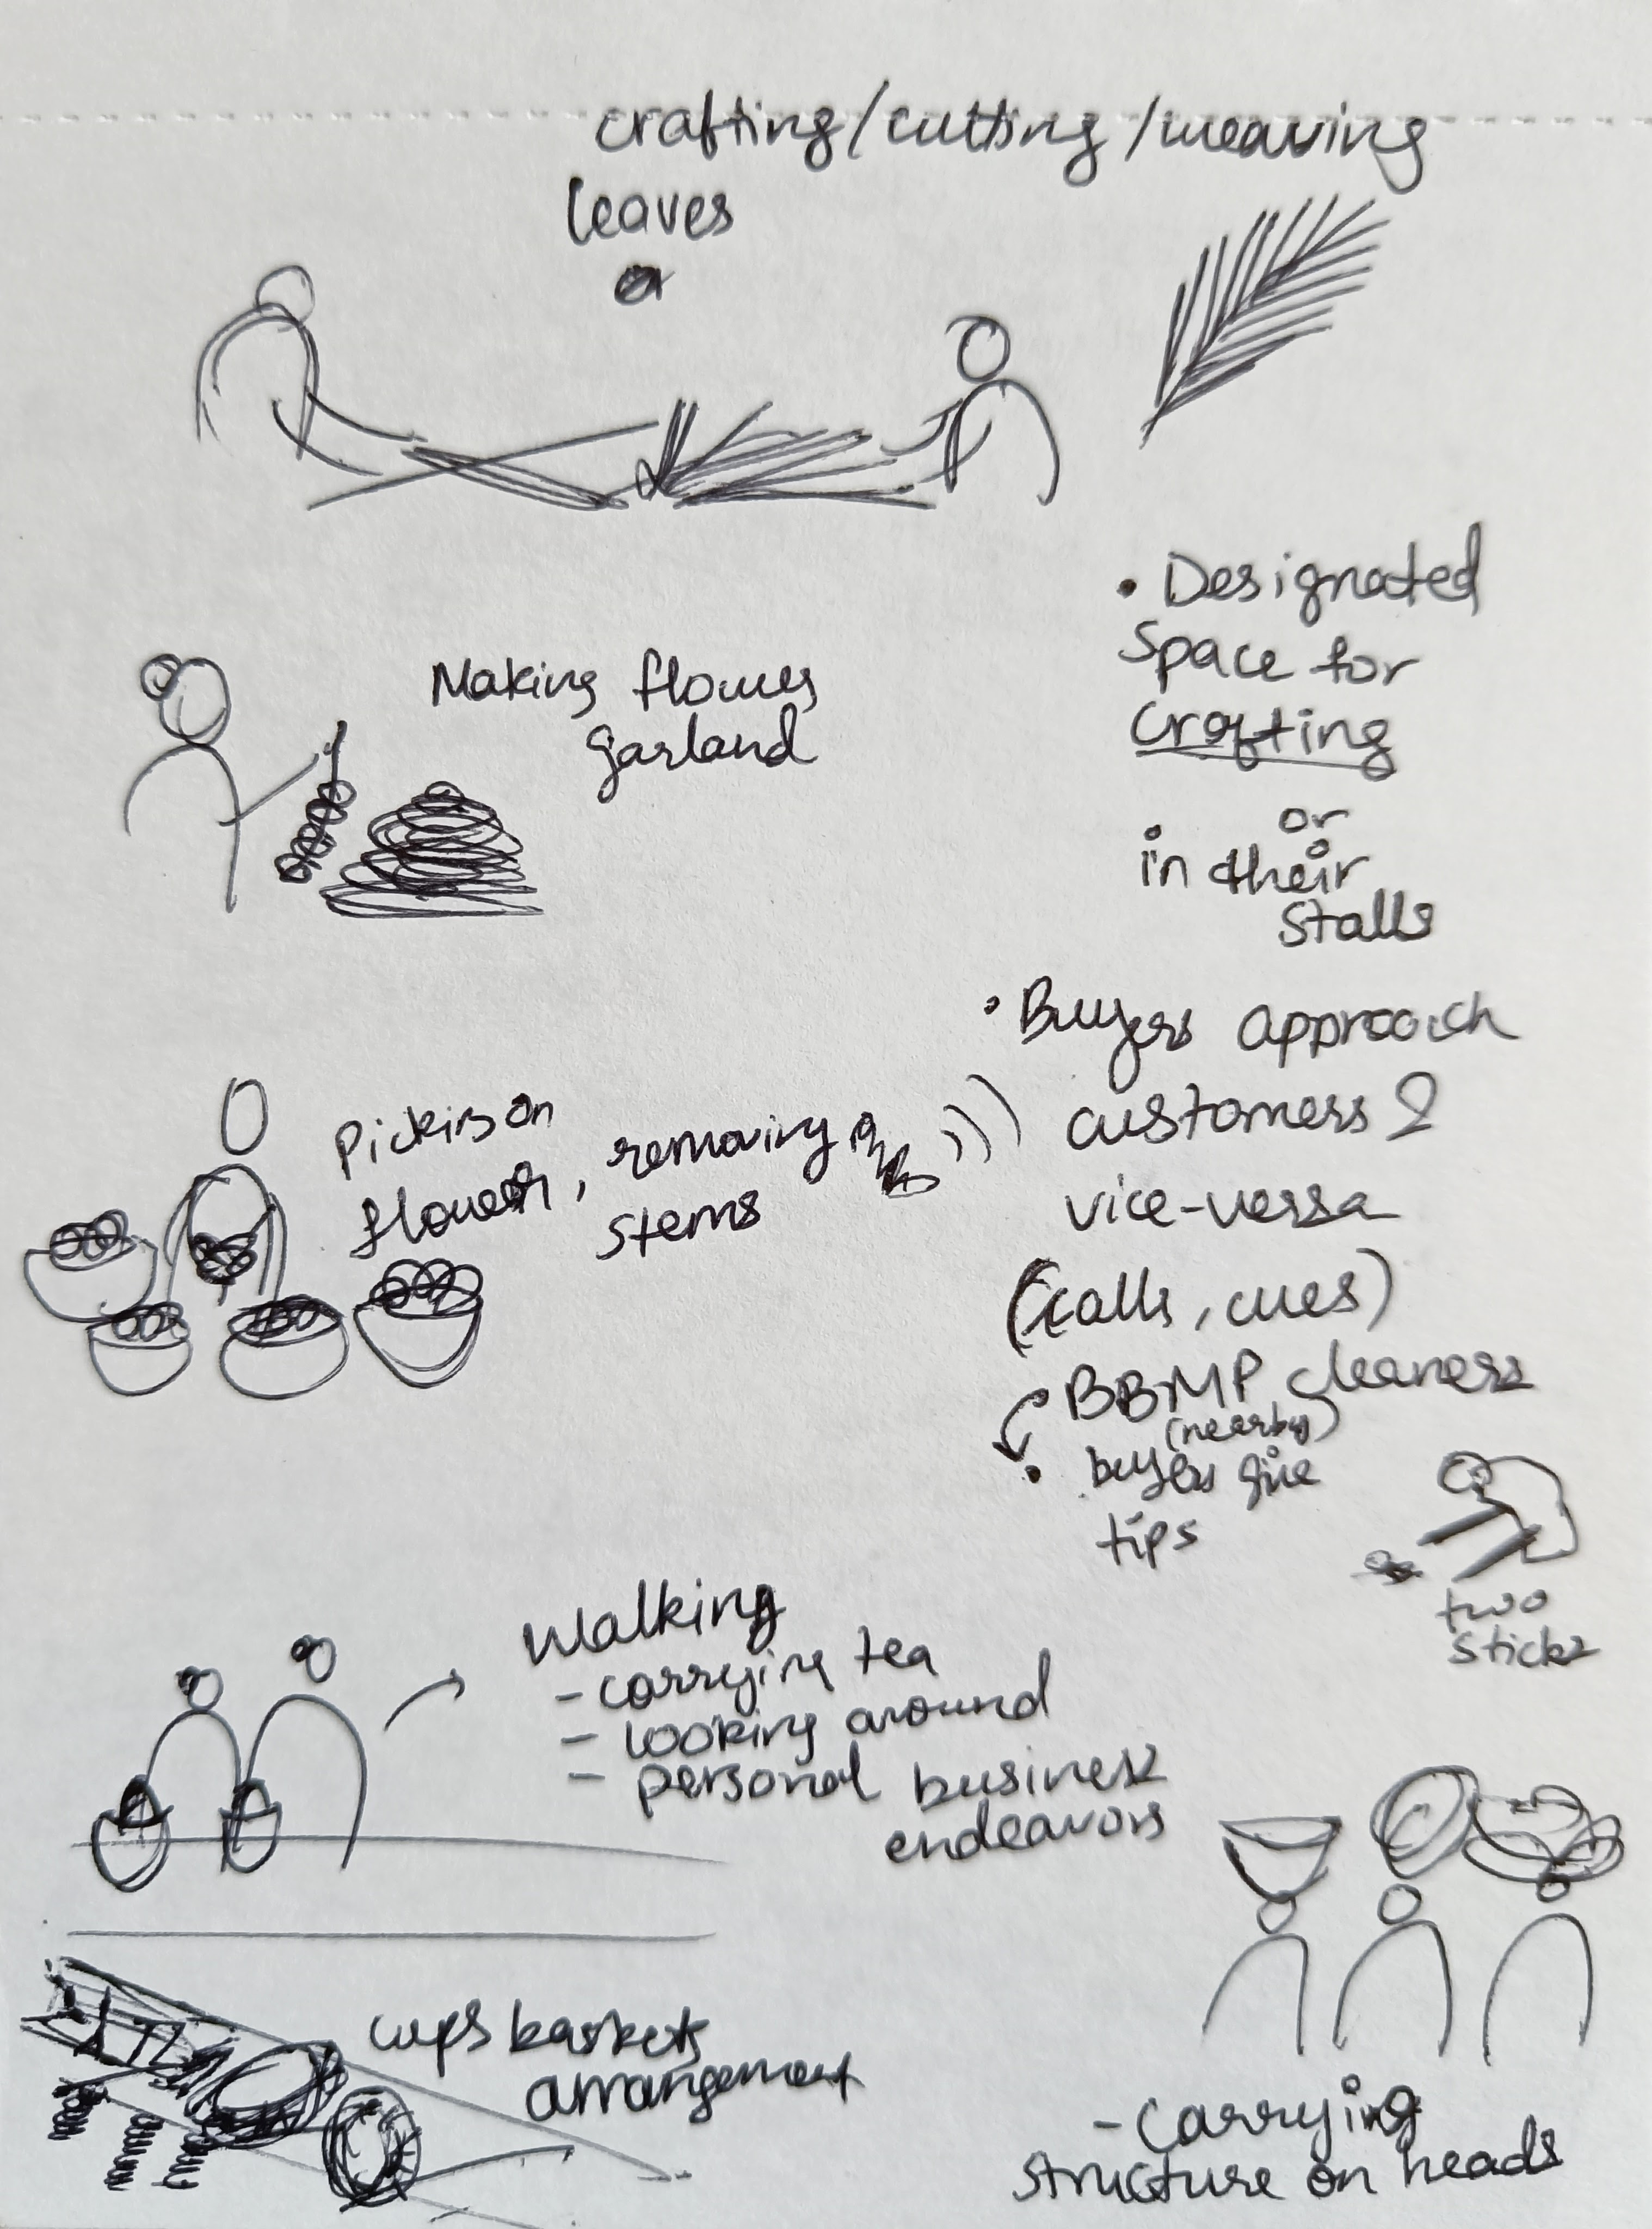 crafting/cutting/weaving
leaves
Making flower
garland
• Designated
space for
crafting
or
in their
stalls
• Buyers approach
customers &
vice-versa
(calls, cues)
flower, removing
stems
• BBMP cleaners
(nearby)
• buyers give
tips
two
sticks
Walking
- carrying tea
- looking around
- personal business
endeavors
cups baskets
arrangement
- carrying
structure on heads